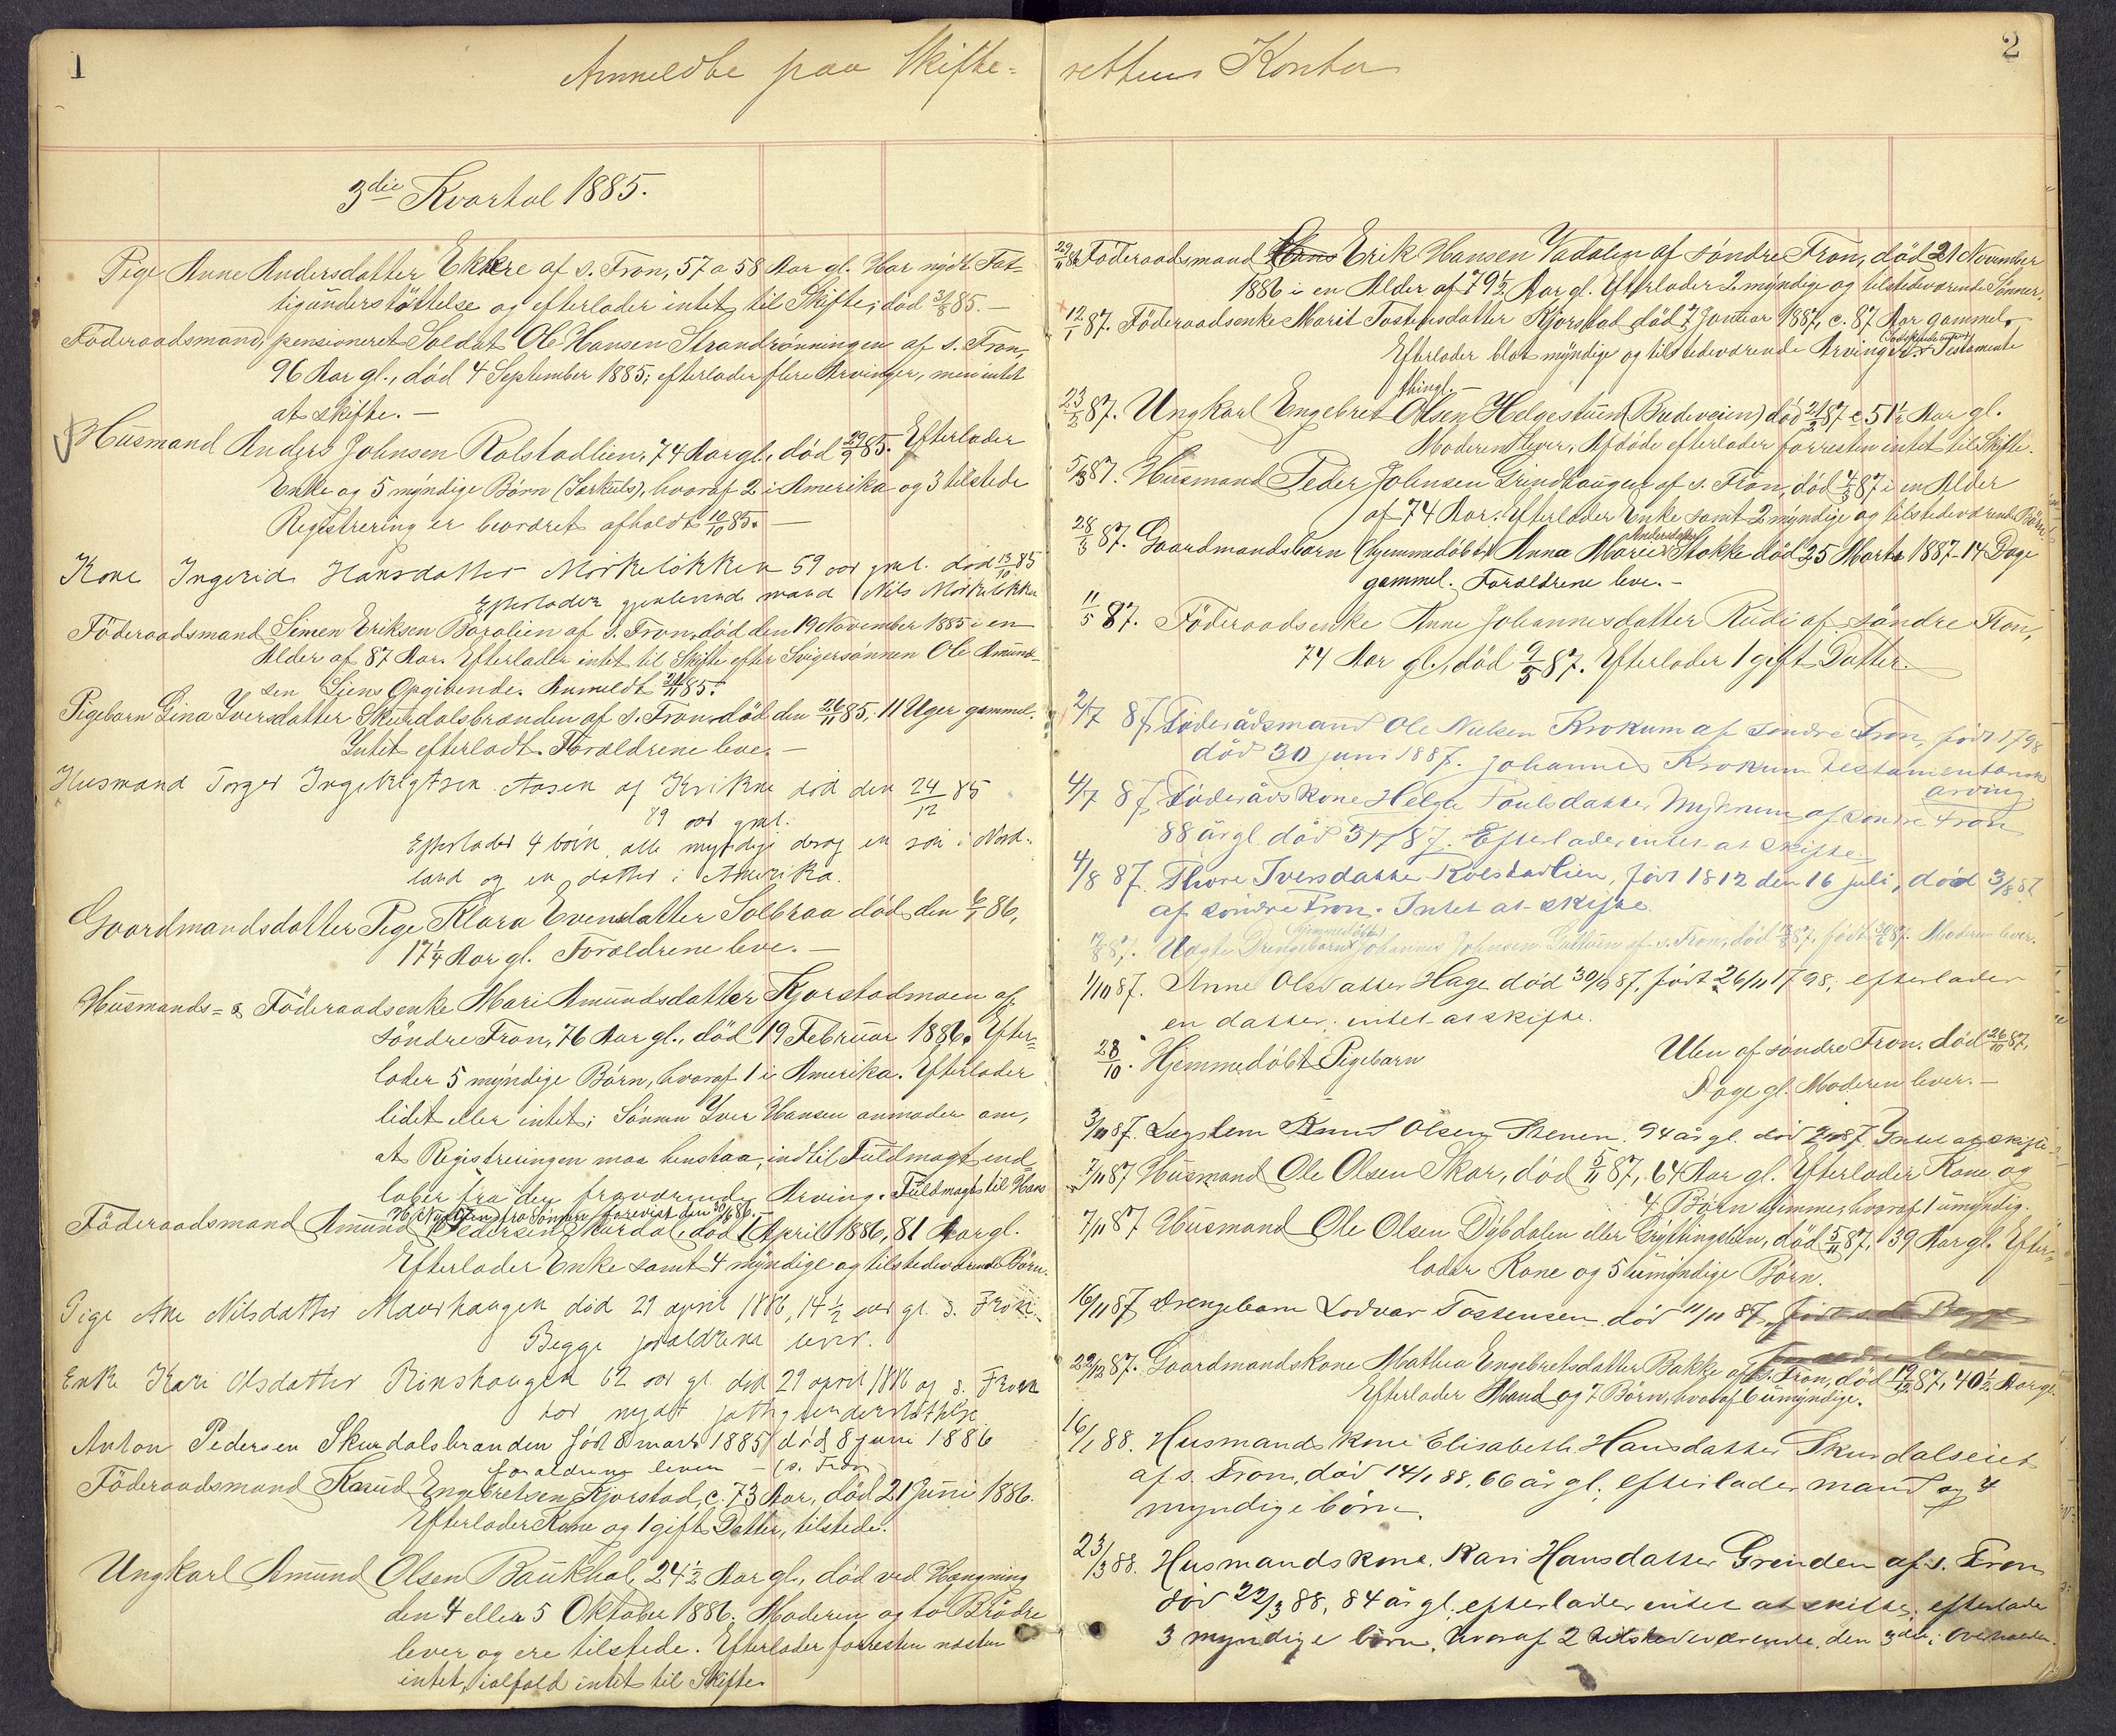 1
Anmeldte paa Skifte=
3die Kvartal 1885.
Pige Anne Andersdatter Ekre af s. Fron, 57 a 58 Aar gl. Har nydt Fat-
tigunderstöttelse og efterlader intet til Skifte; död 31/8 85. —
Föderaadsmand, pensioneret Soldat Ole Hansen Strandrönningen af s. Fron,
96 Aar gl., död 4 September 1885; efterlader flere Arvinger, men intet
at skifte. —
Husmand Anders Johnsen Rolstadlien, 74 Aar gl., död 29/9 85. Efterlader
Enke og 5 myndige Börn (Særkuls), hvoraf 2 i Amerika og 3 tilstede
Registrering er beordret afholdt 10/10 85. —
Kone Ingerid Hansdatter Mörkelökken 59 aar gml. död 13/10 85
Efterlader gjenlevende mand (Nils Mörkelökken
Föderaadsmand Simen Eriksen Baralien af s. Fron, död den 19 November 1885 i en
Alder af 87 Aar. Efterlader intet til Skifte efter Svigersönnen Ole Amund-
sen Liens Opgivende. Anmeldt 21/11 85.
Pigebarn Gina Iversdatter Skurdalsbrænden af s. Fron, död den 26/11 85, 11 Uger gammel.
Intet efterladt. Forældrene leve. —
Husmand Torger Ingebrigtsen Aasen af Kvikne död den 24/12 85
89 aar gml.
Efterlader 4 börn, alle myndige deraf en sön i Nord-
land og en datter i Amerika.
Gaardmandsdatter Pige Klara Evensdatter Solbraa död den 6/1 86,
17 1/4 Aar gl. Forældrene leve. —
Husmands- & Föderaadsenke Mari Amundsdatter Kjorstadmoen af
söndre Fron, 76 Aar gl., död 19 Februar 1886. Efter=
lader 5 myndige Börn, hvoraf 1 i Amerika. Efterlader
lidet eller intet; Sönnen Iver Hansen anmoder om,
at Registreringen maa henstaa, indtil Fuldmagt ind-
löber fra den fraværende Arving. Fuldmagt til Hans
fra Sönnen forevist den 30/6 86. —
Föderaadsmand Amund Pedersen Skurdal, död 1 April 1886, 81 Aar gl.
Efterlader Enke samt 4 myndige og tilstedeværende Börn.
Pige Ane Nilsdatter Maurhaugen död 29 april 1886, 14 1/2 aar gl. s. Fron.
Begge forældrene lever.
Enke Kari Olsdatter Rinshaugen 62 aar gl. död 29 april 1886 af s. Fron
har nydt fattigunderstöttelse
Anton Pedersen Skurdalsbrænden född 8 marts 1885, död 8 juni 1886
forældrene lever — (s. Fron)
Föderaadsmand Knud Engebretsen Kjorstad, c. 73 Aar, död 21 Juni 1886.
Efterlader Kone og 1 gift Datter, tilstede.
Ungkarl Amund Olsen Baukhol, 24 1/2 Aar gl., död ved Hængning
den 4 eller 5 Oktober 1886. Moderen og to Brödre
lever og ere tilstede. Efterlader forresten næsten
intet, ialfald intet til Skifte.
2
rettens Kontor
29/11 86 Föderaadsmand Hans Erik Hansen Vadalen af söndre Fron, död 21 November
1886 i en Alder af 79 1/2 Aar gl. Efterlader 2 myndige og tilstedeværende Sönner.
12/1 87. Föderaadsenke Marit Tostensdatter Kjorstad död 7 Januar 1887, c. 87 Aar gammel.
Efterlader blot myndige og tilstedeværende Arvinger. Testamente
thingl. —
23/2 87. Ungkarl Engebret Olsen Helgestuen (Budeveien) död 21/2 87 c. 51 1/2 Aar gl.
Moderen lever, Afdöde efterlader forresten intet til Skifte.
5/3 87. Husmand Peder Johnsen Grindhaugen af s. Fron, död 4/3 87 i en Alder
af 74 Aar. Efterlader Enke samt 2 myndige og tilstedeværende Börn
28/3 87. Gaardmandsbarn (hjemmedöbt) Anna Marie Andersdatter Stokke död 25 Marts 1887 - 14 Dage
gammel. Forældrene leve. —
11/5 87. Föderaadsenke Anne Johannesdatter Rudi af söndre Fron,
74 Aar gl., död 9/5 87. Efterlader 1 gift Datter.
2/7 87. Föderådsmand Ole Nielsen Krokum af söndre Fron, född 1798
död 30 juni 1887. Johannes Krokum Testamentarisk
arving.
4/7 87. Föderådskone Helga Poulsdatter af söndre Fron
88 år gl. död 3/7 87. Efterlader intet at skifte.
4/8 87. Thore Iversdatter Rolstadlien, född 1812 den 16 juli, död 3/8 87
af söndre Fron. Intet at skifte.
19/8 87. Uægte Drengebarn (hjemmedöbt) Johannes Johnsen af s. Fron, död 87, född 87. Moderen lever.
1/10 87. Anne Olsdatter Hage död 30/9 87, född 26/11 1798; efterlader
en datter; intet at skifte.
28/10. Hjemmedöbt Pigebarn Ulen af söndre Fron, död 26/10 87,
Dage gl. Moderen lever. —
3/11 87. Lægslem Knud Olsen Stenen. 94 år gl. död 2/11 87. Intet at skifte.
7/11 87 Husmand Ole Olsen Skar, död 5/11 87, 64 Aar gl. Efterlader Kone og
4 Börn hjemme, hvoraf 1 umyndig.
7/11 87 Husmand Ole Olsen Dybdalen eller Gryttingslien, död 5/11 87, 39 Aar gl. Efter-
lader Kone og 5 umyndige Börn.
16/11 87 Drengebarn Lodvar Tostensen död 11/11 87,
22/12 87. Gaardmandskone Mathea Engebretsdatter Bakke af s. Fron, död 19/12 87, 40 1/2 Aar gl.
Efterlader Mand og 7 Börn, hvoraf 6 umyndige.
16/1 88. Husmandskone Elisabeth Hansdatter Skurdalseiet
af s. Fron, död 14/1 88, 66 år gl. efterlader mand og 4
myndige börn.
23/3 88. Husmandskone Kari Hansdatter Grinden af s. Fron
död 22/3 88, 84 år gl, efterlader intet at skifte; efterlader
3 myndige börn, hvoraf 2 tilstedeværende, den 3die i